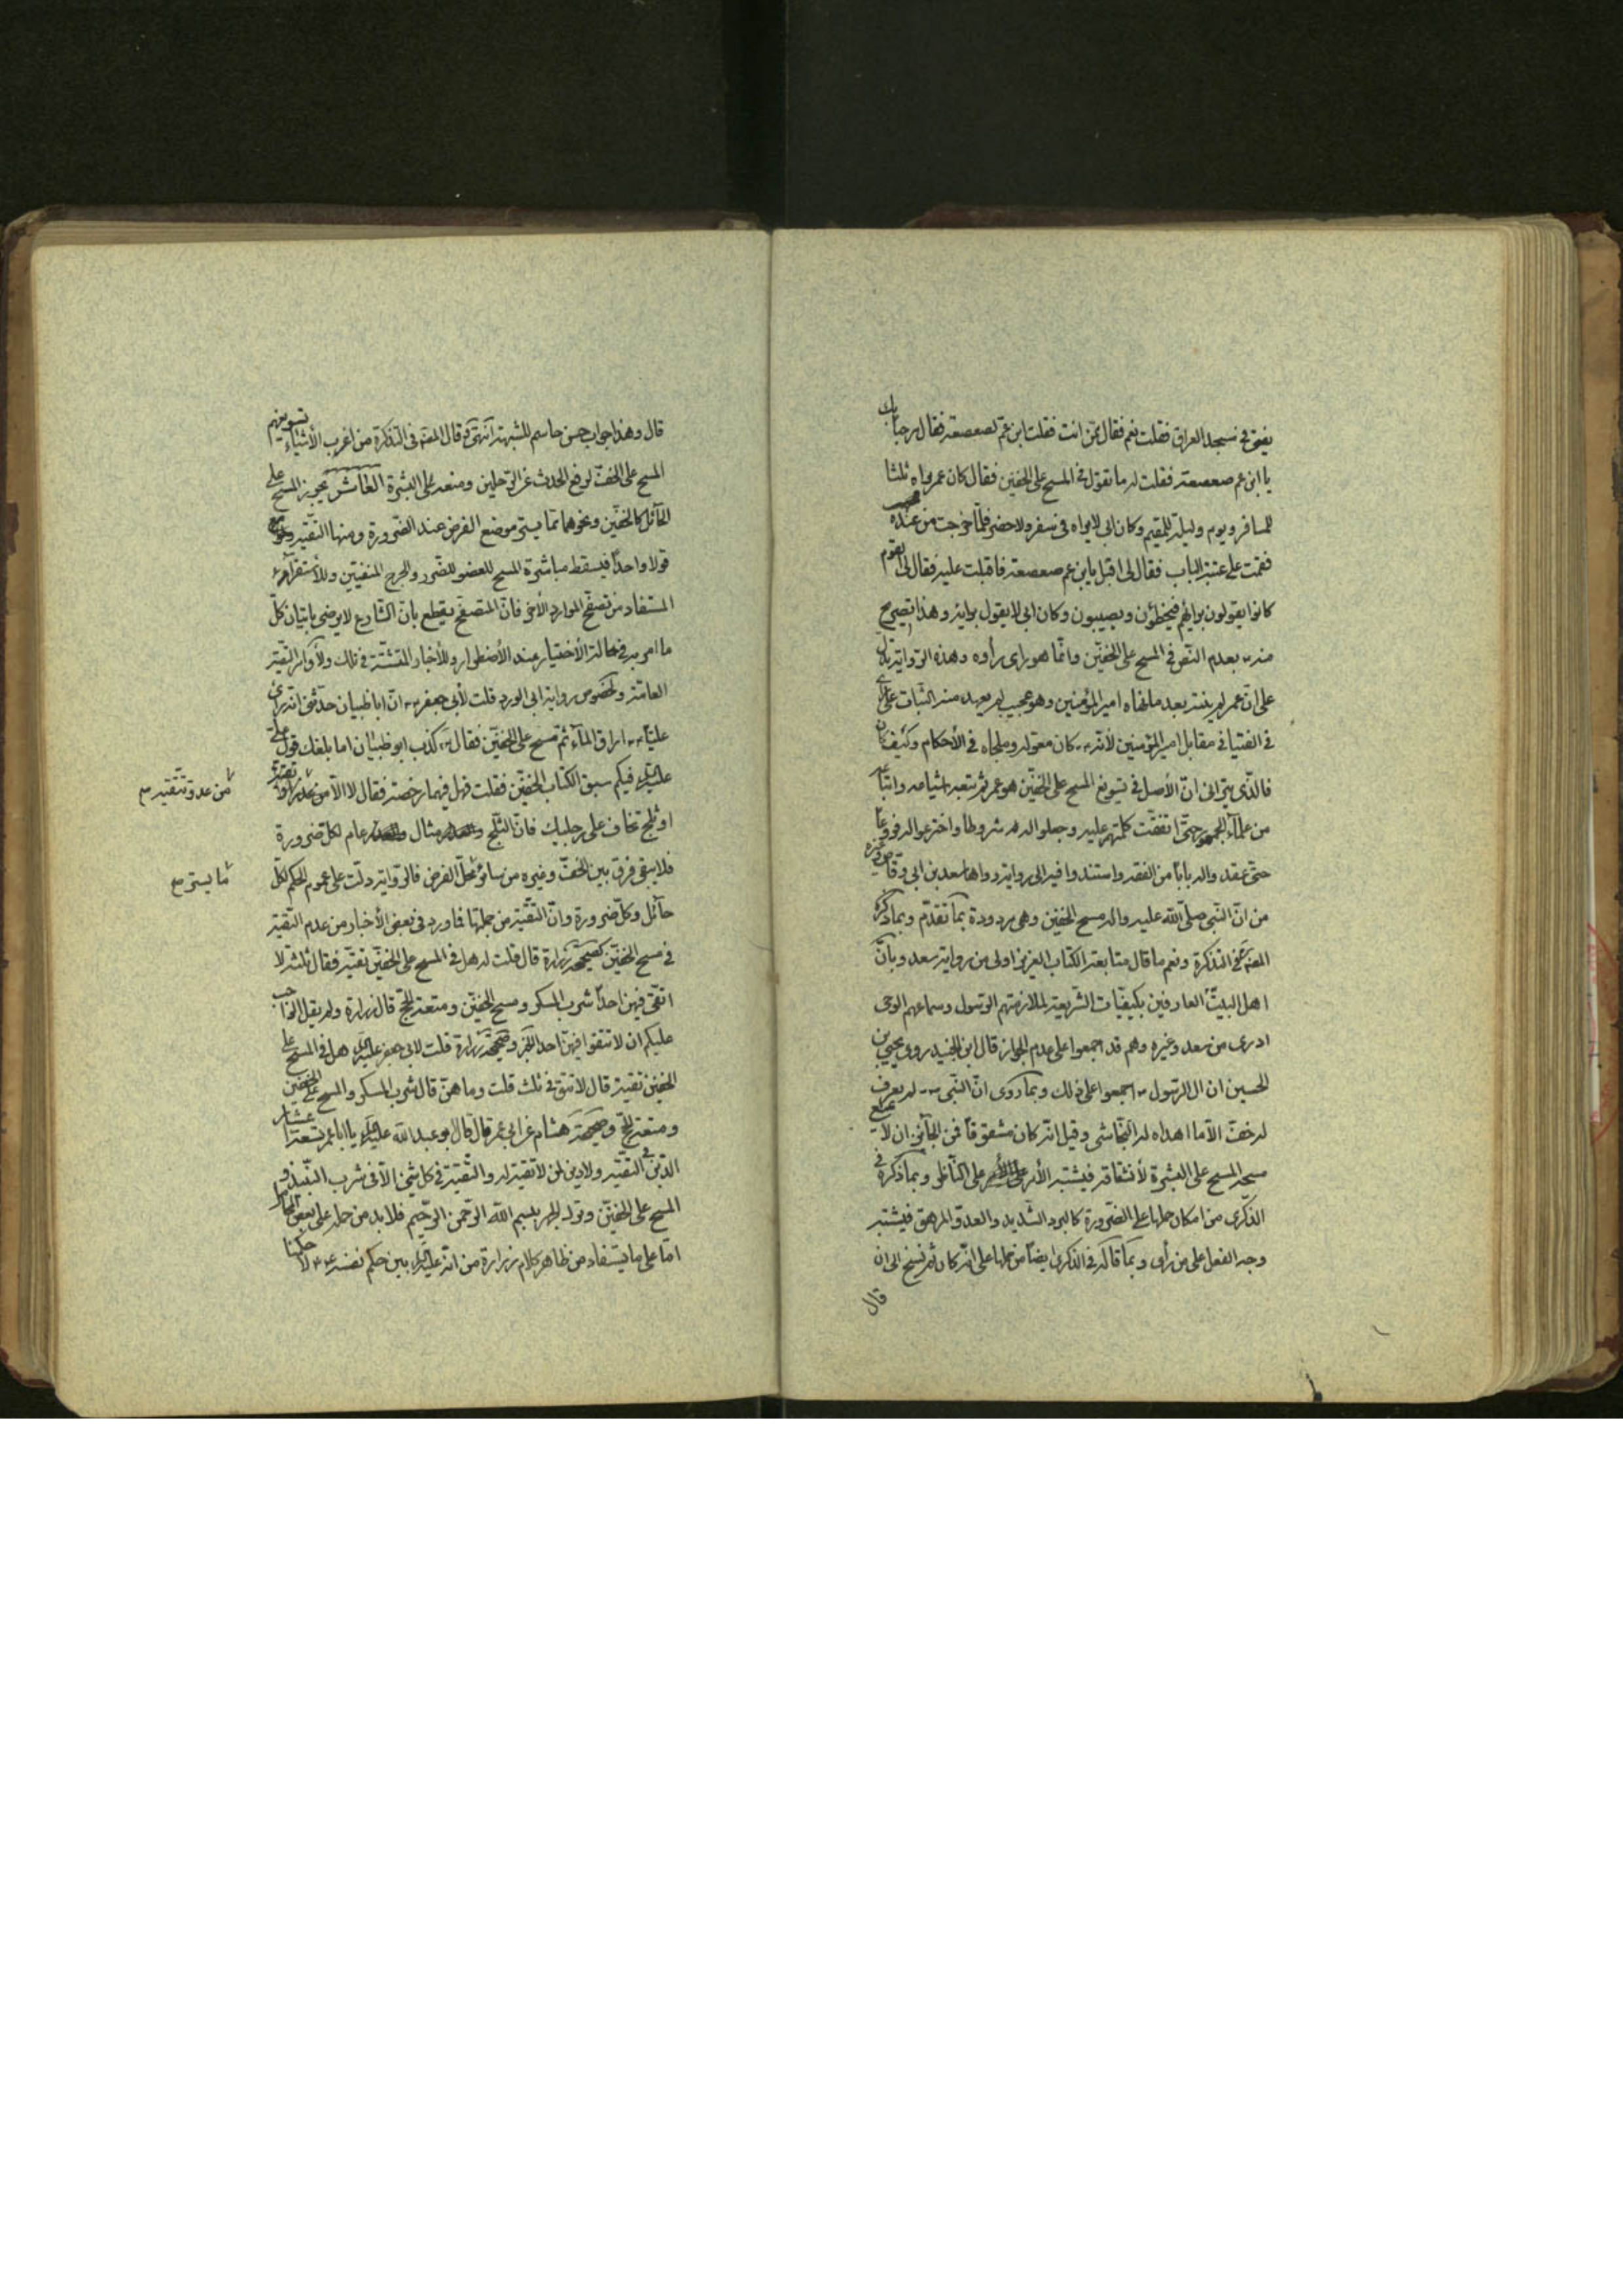 يفتى فى مسجد العراق فقلت نعم فقال ممن انت فقلت ابن عم لصعصعة فقال مرحبا بك
يا ابن عم صعصعة فقلت له ما تقول فى المسح على الخفين فقال كان عمر يراه ثلثا
للمسافر ويوم وليلة للمقيم وكان ابى لا يراه فى سفر ولا حضر فلما خرجت من عنده
فقمت على عتبة الباب فقال لى اقبل يا بن عم صعصعة فاقبلت عليه فقال لى ان القوم
كانوا يقولون برأيهم فيخطؤن ويصيبون وكان ابى لا يقول برايه وهذا تصريح
منه بعدم النص فى المسح على الخفين وانما هو راى رأوه وهذه الرواية تدل
على ان عمر لم ينته بعد ما نهاه امير المؤمنين وهو عجيب لم يعهد منه الثبات على
فى الفتيا فى مقابل امير المؤمنين لأنه كان معوله وملجاه فى الأحكام وكيف كان
فالذى يترائى ان الأصل فى تسويغ المسح على الخفين هو عمر ثم تبعه اشياعه واتباعه
من علمآء الجمهور حتى اتفقت كلمتهم عليه وجعلوا له شروطا واخترعوا له فروعا
حتى عقد واله بابا من الفقه واستندوا فيه الى رواية رواها سعد بن ابى وقاص وغيره
من ان النبى صلى الله عليه واله مسح الخفين وهى مردودة بما تقدم وبما ذكره
المصنف فى التذكرة ونعم ما قال متابعة الكتاب العزيز اولى من رواية سعد وبان
اهل البيت العارفين بكيفيات الشريعة لملازمتهم الرسول وسماعهم الوحى
ادرى من سعد وغيره وهم قد اجمعوا على عدم الجواز قال ابن الجنيد روى يحيى بن
الحسين ان ال الرسول اجمعوا على ذلك وبما روى ان النبى لم يعرف
له خف الا ما اهداه له النجاشى وقيل انه كان مشقوقا فمن الجائز ان لا يمنع
مسحه المسح على البشرة لأنشقاقه فيشتبه الأمر على الناظر وبما ذكره فى
الذكرى من امكان حملها على الضرورة كالبرد الشديد والعدو المرهق فيشتبه
وجه الفعل على من رأى وبما قاله فى الذكرى ايضا من حملها على انه كان ثم نسخ الى ان
قال
قال وهذا جواب حسن حاسم للشبهة انتهى وقال المصنف فى التذكرة من اغرب الأشياء تسويغهم
المسح على الخف لرفع الحدث عن الرجلين ومنعه على البشرة العاشر يجوز المسح على
الحآئل كالخفين ونحوهما مما يستر موضع الفرض عند الضرورة ومنها التقية
قولا واحدا فيسقط مباشرة المسح للعضو للضرر والحرج المنفيين وللأستقرآء
المستفاد من تصفح الموارد الأخر فان المتصفح يقطع بان الشارع لا يرضى باتيان كل
ما امر به فى حالة الأختيار عند الأضطرار وللأخبار المتشتتة فى ذلك ولأوامر التقية
العامة ولخصوص رواية ابى الورد قلت لأبى جعفر ان ابا ظبيان حدثنى انه راى
عليا اراق المآء ثم مسح على الخفين فقال كذب ابو ظبيان اما بلغك قول على
عليه السلام فيكم سبق الكتاب الخفين فقلت فهل فيهما رخصة فقال لا الا من
او ثلج تخاف على رجليك فان الثلج مثال عام لكل ضرورة
من عدو تتقيه صح
فلا يبقى فرق بين الخف وغيره من سائر محل الفرض فالرواية دلت على عموم الحكم لكل
مما يستر صح
حآئل وكل ضرورة وان التقية من جملتها فما ورد فى بعض الأخبار من عدم التقية
فى مسح الخفين كصحيحة زرارة قال قلت له هل فى المسح على الخفين تقية فقال ثلثة لا
اتقى فيهن احدا شرب المسكر ومسح الخفين ومتعة الحج قال زرارة ولم يقل الواجب
عليكم ان لا تتقوا فيهن احدا الخبر وصحيحة زرارة قلت لابى جعفر عليه السلام هل فى المسح على
الخفين تقية قال لا تتق فى ثلث قلت وما هن قال شرب المسكر والمسح على الخفين
ومتعة الحج وصحيحة هشام عن ابى عمر قال قال ابو عبد الله عليه السلام يا ابا عمر تسعة اعشار
الدين فى التقية ولا دين لمن لا تقية له والتقية فى كل شئ الا فى شرب النبيذ و
المسح على الخفين وترك الجهر ببسم الله الرحمن الرحيم فلا بد من حمله على بعض المحامل
اما على ما يستفاد من ظاهر كلام زرارة من انه عليه السلام بين حكم نفسه لا حكمنا